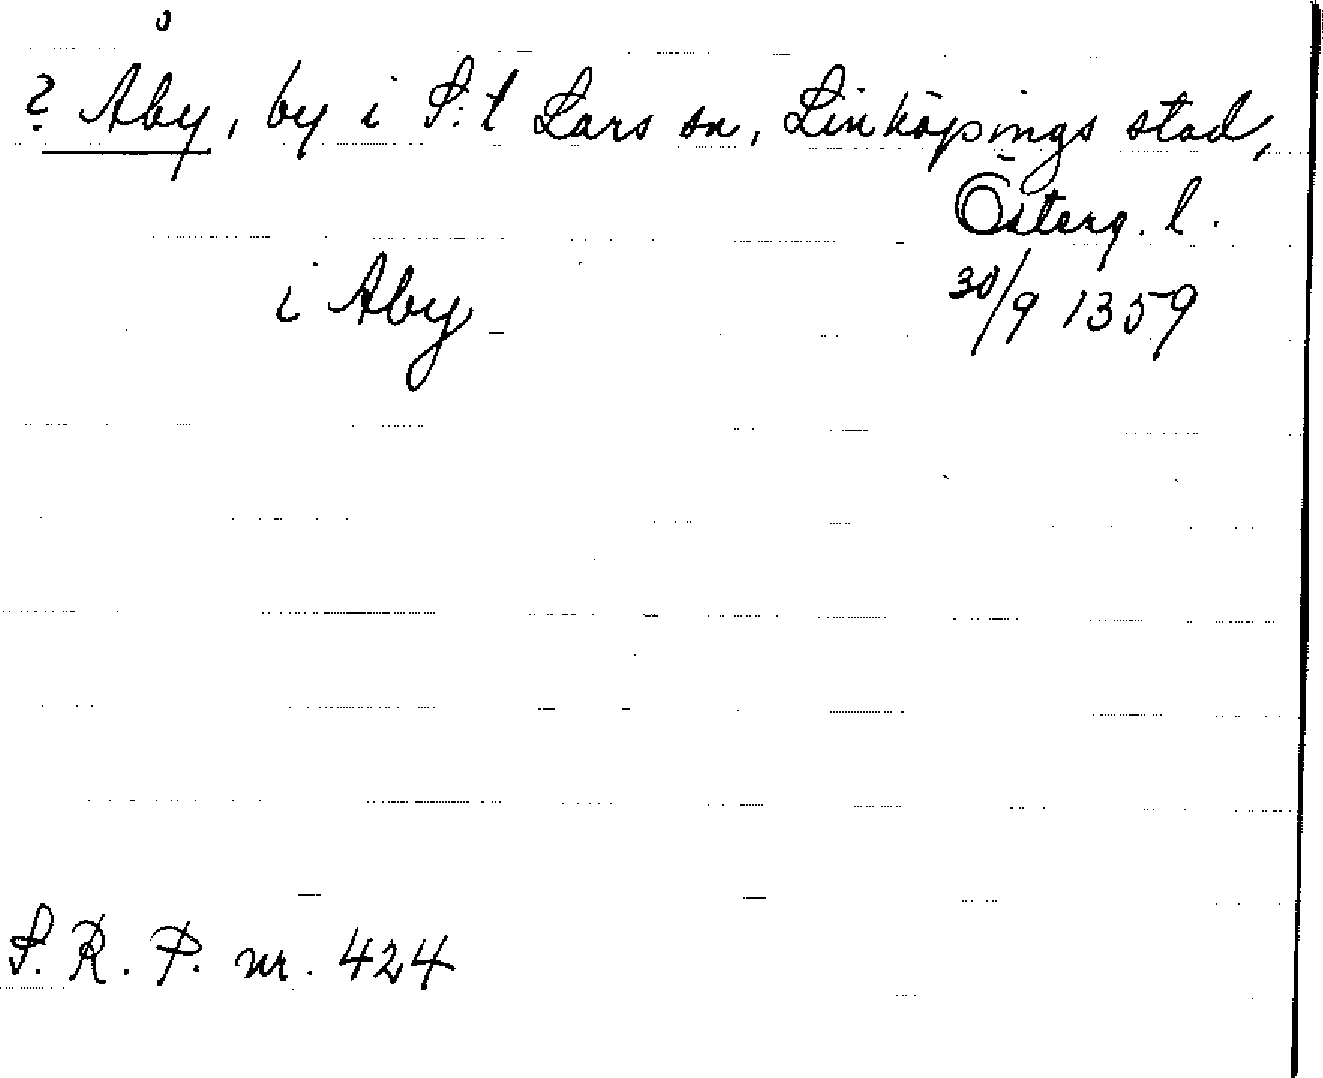 ? Åby, by i S:t Lars sn, Linköpings stad,
Österg. l.
i Aby 30/9 1359
S. R. P. nr. 424